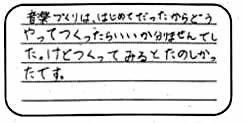 音楽づくりは、はじめてだったからどう
やってつくったらいいか分りませんでし
た。けどつくってみるとたのしかっ
たです。